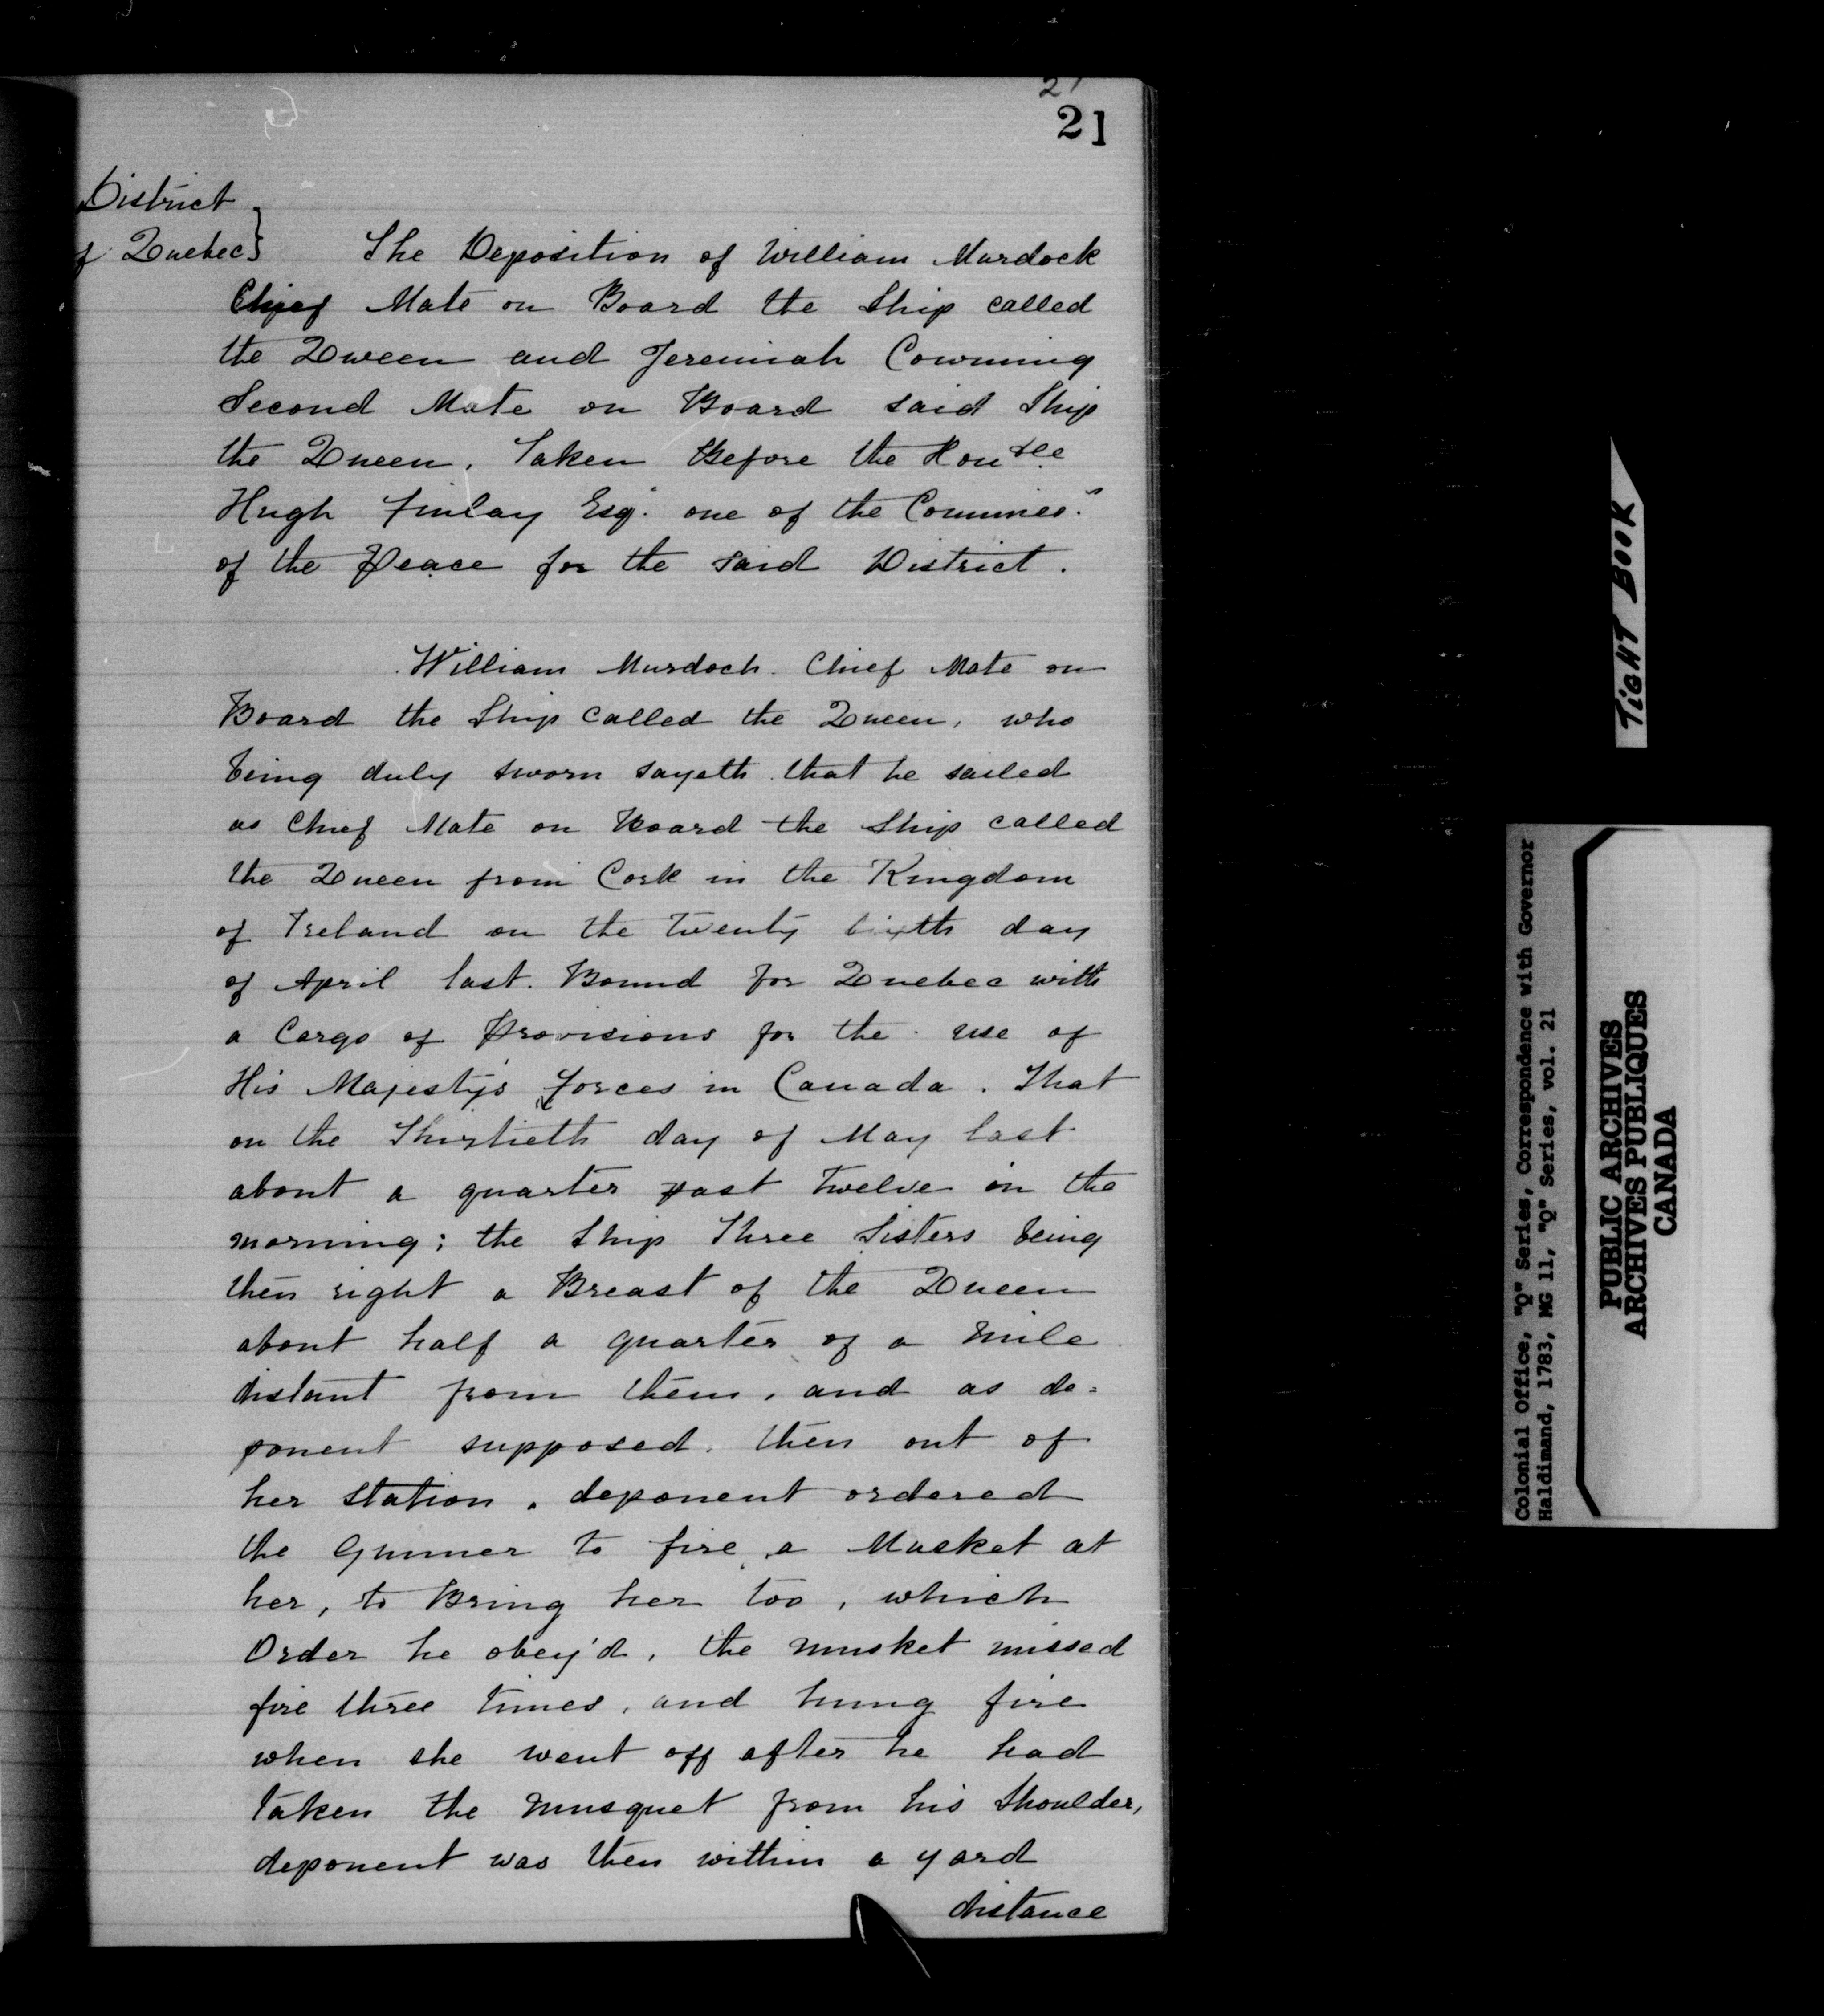 21
21
District
of Quebec}
The Deposition of William Murdock
Chief Mate on Board the Ship called
the Queen and Jeremiah Cowning
Second Mate on Board said Ship
the Queen. Taken Before the Honble
Hugh Finlay Esq. one of the Commiss.rs
of the Peace for the said District.
William Murdoch Chief Mate on
Board the Ship called the Queen, who
being duly sworn sayeth that he sailed
as Chief Mate on Board the Ship called
the Queen from Cork in the Kingdom
of Ireland on the twenty day
of April last. Bound for Quebec with
a Cargo of Provisions for the use of
His Majesty's forces in Canada. That
on the Thirtieth day of May last
about a quarter past twelve in the
morning; the Ship Three Sisters being
then right a Breast of the Queen
about half a quarter of a mile
distant from them, and as de=
ponent supposed then out of
her station, deponent ordered
the Gunner to fire a Musket at
her, to Bring her too, which
Order he obey'd, the musket missed
fire three times, and hung fire
when she went off after he had
taken the musquet from his Shoulder,
deponent was then within a yard
distance
TIGHT BOOK
Colonial Office, "Q" Series, Correspondence with Governor
Haldimand, 1783, MG 11, "Q" Series, vol. 21
PUBLIC ARCHIVES
ARCHIVES PUBLIQUES
CANADA